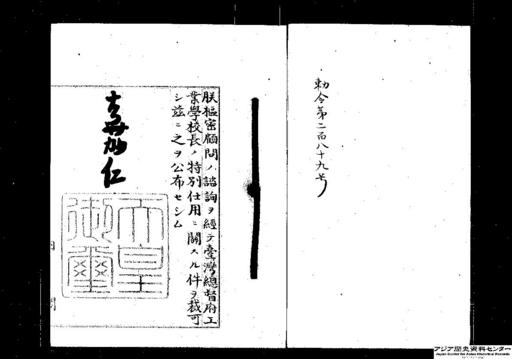 勅令第二百八十九号
朕樞密顧問ノ諮詢ヲ經テ臺灣總督府工
業學校長ノ特別任用ニ關スル件ヲ裁可
シ茲ニ之ヲ公布セシム
嘉仁
天皇
御璽
アジア歴史資料センター
Japan Center for Asian Historical Records